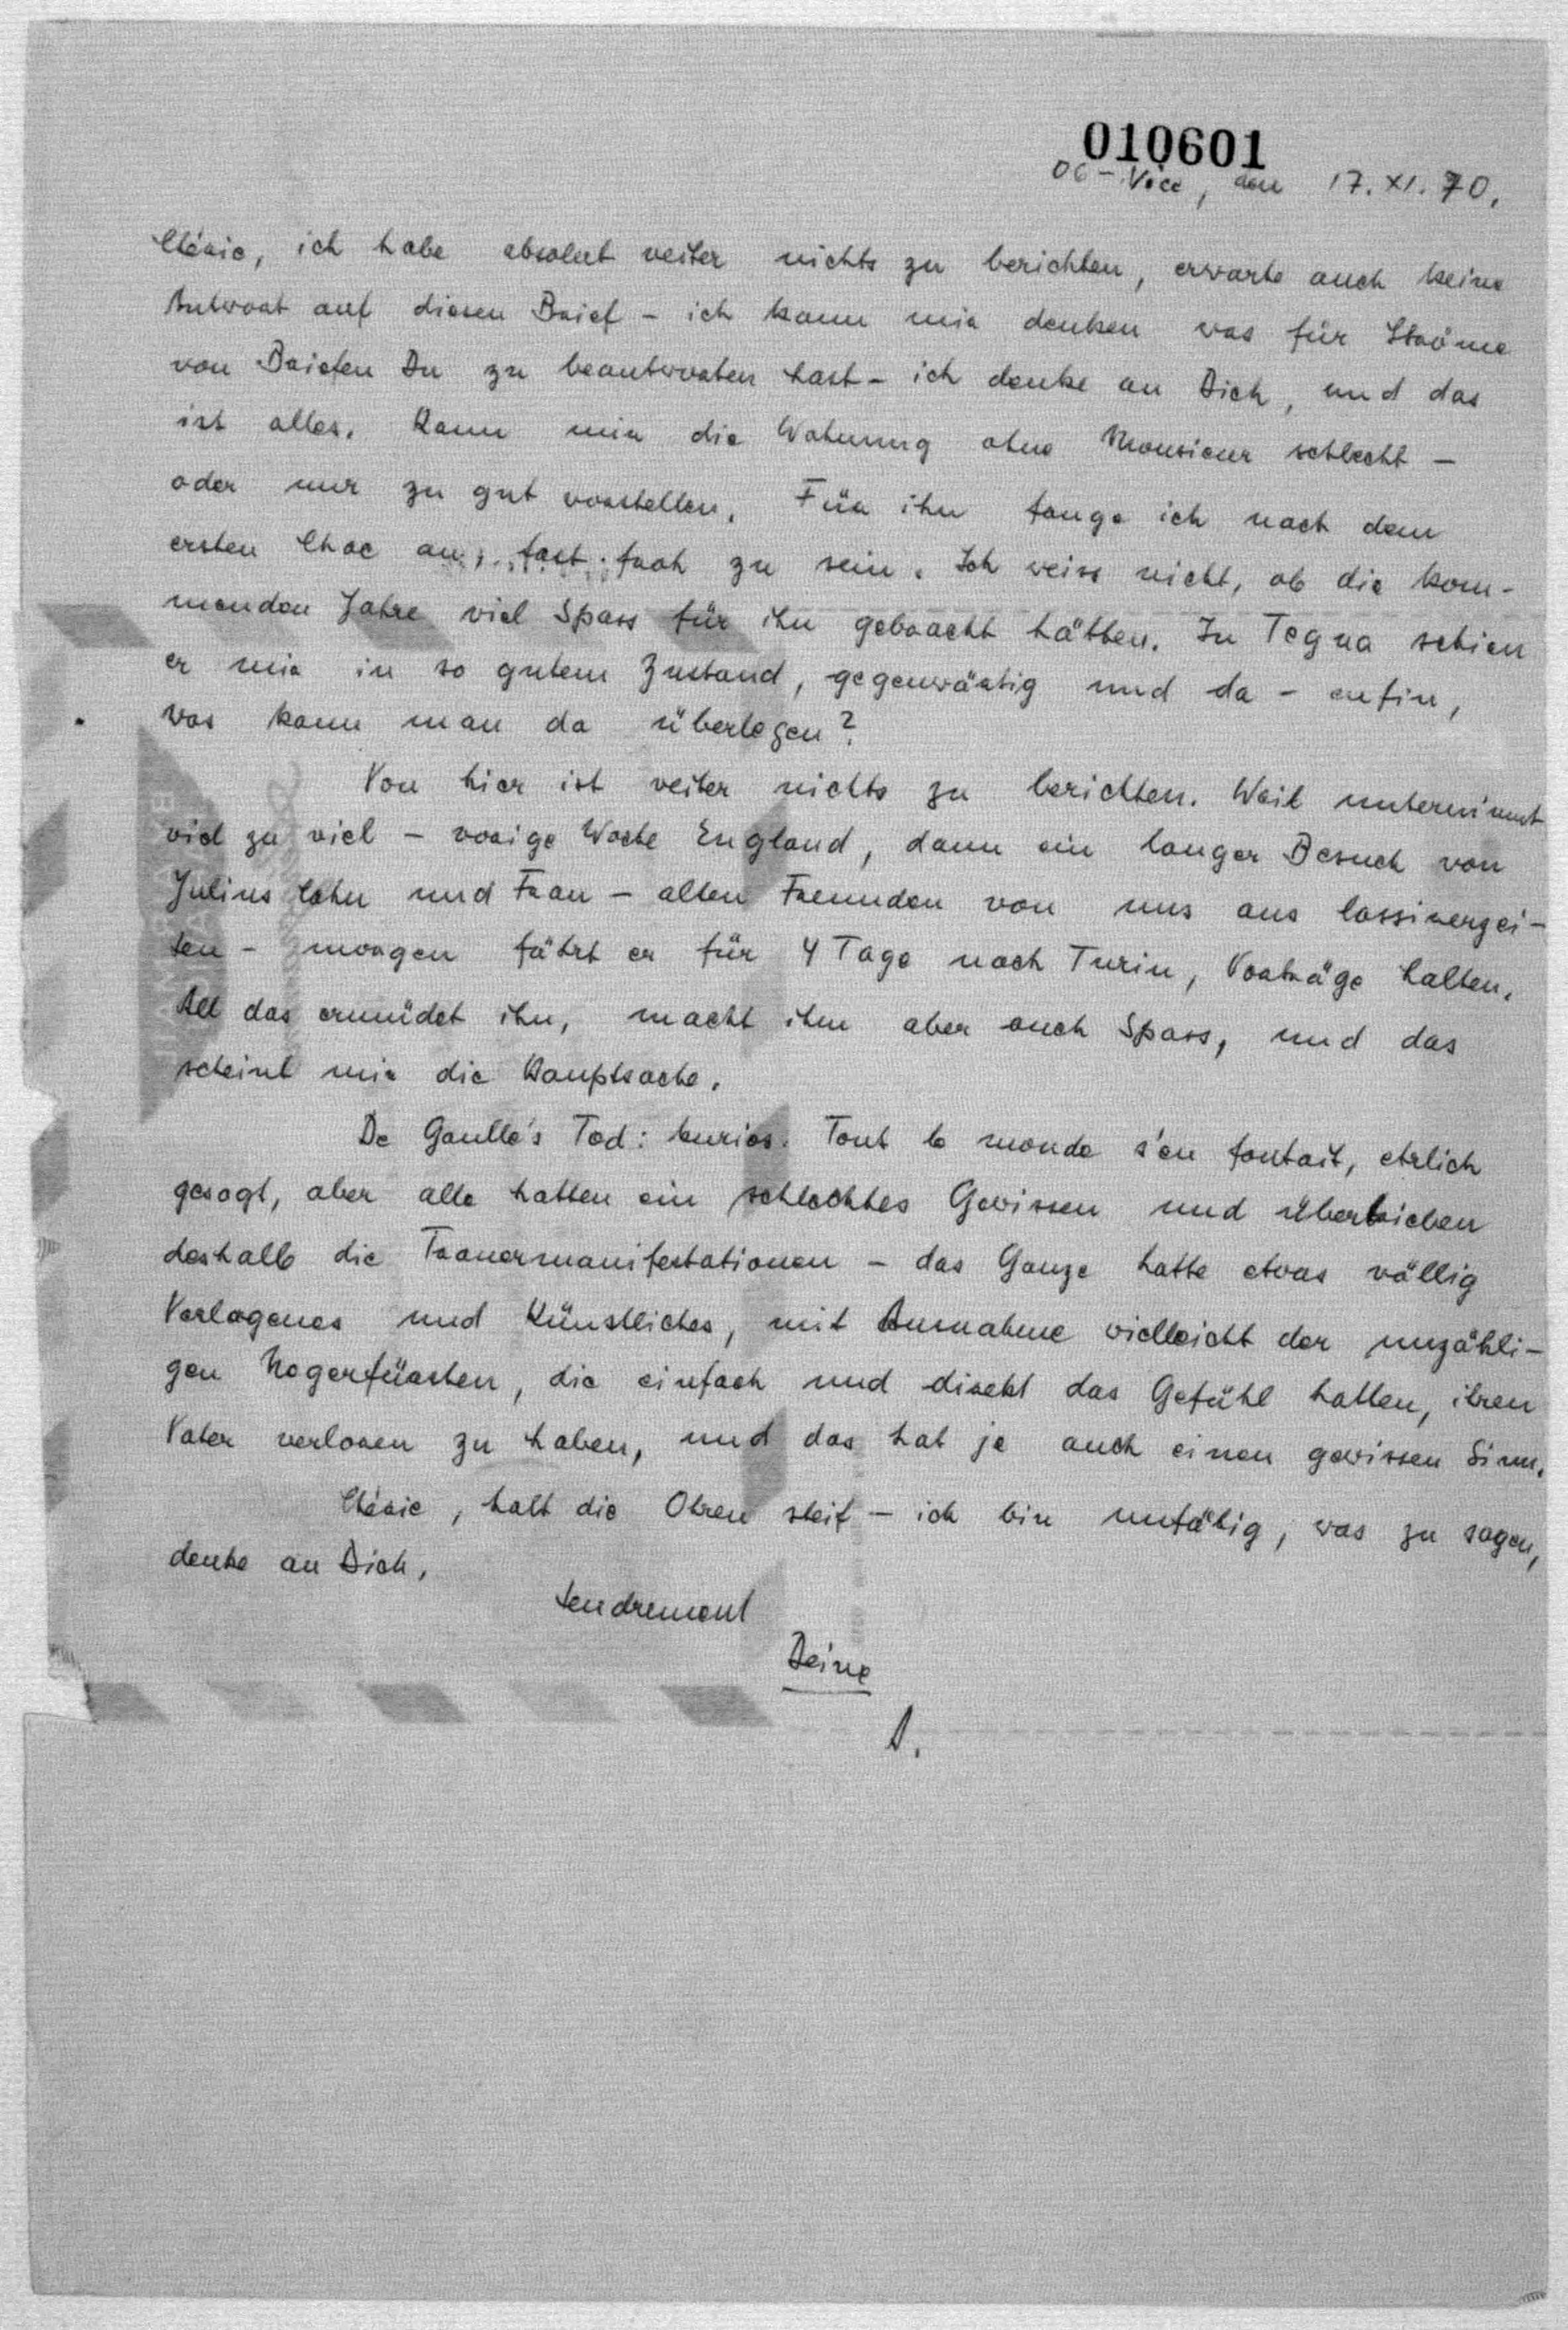 010601
06-Nice, den 17.XI.70.
Chérie, ich habe absolut weiter nichts zu berichten, erwarte auch keine
Antwort auf diesen Brief - ich kann mir denken was für Ströme
von Briefen Du zu beantworten hast - ich denke an Dich, und das
ist alles. Kann mir die Wohnung ohne Monsieur schlecht -
oder nur zu gut vorstellen. Für ihn fange ich nach dem
ersten Choc an, fast froh zu sein. Ich weiss nicht, ob die kom-
menden Jahre viel Spass für ihn gebracht hätten. In Tegna schien
er mir in so gutem Zustand, gegenwärtig und da - enfin,
was kann man da überlegen?
Von hier ist weiter nichts zu berichten. Weil unternimmt
viel zu viel - vorige Woche England, dann ein langer Besuch von
Julius Cohn und Frau - alten Freunden von uns aus Cassirerzei-
ten - morgen fährt er für 4 Tage nach Turin, Vorträge halten.
All das ermüdet ihn, macht ihm aber auch Spass, und das
scheint mir die Hauptsache.
De Gaulle's Tod: kurios. Tout le monde s'en foutait, ehrlich
gesagt, aber alle hatten ein schlechtes Gewissen und übertrieben
deshalb die Trauermanifestationen - das Ganze hatte etwas völlig
Verlogenes und Künstliches, mit Ausnahme vielleicht der unzähli-
gen Negerfürsten, die einfach und direkt das Gefühl hatten, ihren
Vater verloren zu haben, und das hat ja auch einen gewissen Sinn.
Chérie, halt die Ohren steif - ich bin unfähig, was zu sagen,
denke an Dich,
tendrement
Deine
A.